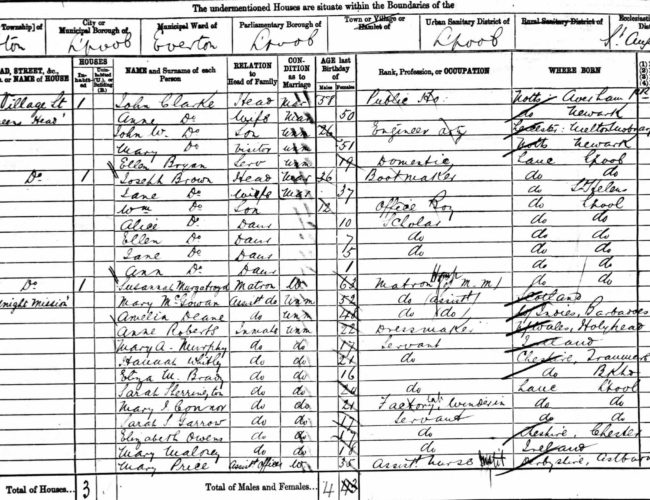 The undermentioned Houses are situate within the Boundaries of the
Township] of City or Municipal Borough of Municipal Ward of Parliamentary Borough of Town or Village or Hamlet of Urban Sanitary District of Rural Sanitary District of Ecclesiastical
ton Lpool Everton Lpool Lpool St Aug
AD, STREET, &c., or NAME of HOUSE HOUSES Inhabited Uninhabited (U.), or Building (B.) NAME and Surname of each Person RELATION to Head of Family CONDITION as to Marriage AGE last Birthday of Males Females Rank, Profession, or OCCUPATION WHERE BORN
Village St 1 John Clarke Head Mar 51 Public Ho: Notts Averham
eens Head' Anne Do Wife Mar 50 do Newark
John W. Do Son Unm 26 Engineer Leicester
Mary Do Visitor Unm 51 Notts Newark
Ellen Bryan Serv Unm 19 Domestic Lanc Lpool
Do 1 Joseph Brown Head Mar 36 Bootmaker do do
Jane Do Wife Mar 37 do St Helens
Wm Do Son 12 Office Boy do Lpool
Alice Do Daur 10 Scholar do do
Ellen Do Daur 7 do do do
Jane Do Daur 5 do do do
Ann Do Daur 1 do do
Do 1 Susannah Murgatroyd Matron W 63 Matron (M.M) do do
night Mission' Mary McGowan Assist do Unm 52 do (assist) Scotland
Amelia Deane do Unm do do W Indies, Barbados
Anne Roberts Inmate Unm 22 Dressmaker N Wales, Holyhead
Mary A. Murphy do do 17 Servant Ireland
Hannah Whitby do do 21 do Cheshire, Tranmere
Eliza M. Brady do do 16 do B.Khd
Sarah Herrington do do 20 do Lanc Lpool
Mary J. Connor do do 21 Factory do do
Sarah J. Garrow do do 17 Servant do do
Elizabeth Owens do do 17 do Cheshire, Chester
Mary Maloney do do 18 do Ireland
Mary Price Assist Officer W 35 Assist nurse Derbyshire,
Total of Houses... 3 Total of Males and Females... 4